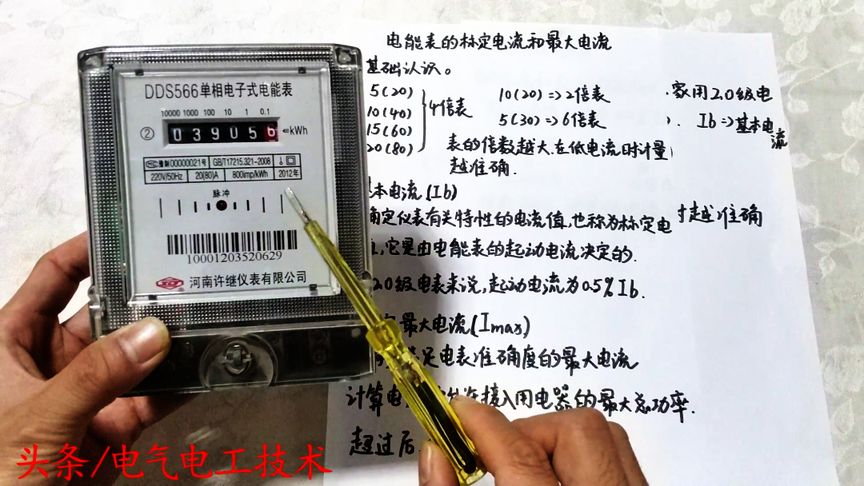 DDS566单相电子式电能表
10000 1000 100 10 1 0.1
② 039056 kWh
00000021号 GB/T17215.321-2008
220V/50Hz 20(80)A 800imp/kWh 2012年
脉冲
10001203520629
河南许继仪表有限公司
电能表的标定电流和最大电流
基础认识。
5(20)
10(40)
15(60)
20(80)
4倍表
10(20)=>2倍表
5(30)=>6倍表
表的倍数越大.在低电流时计量
越准确.
家用2.0级电
Ib=>基本电流
本电流(Ib)
确定仪表有关特性的电流值,也称为标定电
寸越准确
,它是由电能表的起动电流决定的.
2.0级电表来说,起动电流为0.5%Ib.
最大电流(Imax)
足电表准确度的最大电流
计算电
接入用电器的最大总功率.
超过后
头条/电气电工技术